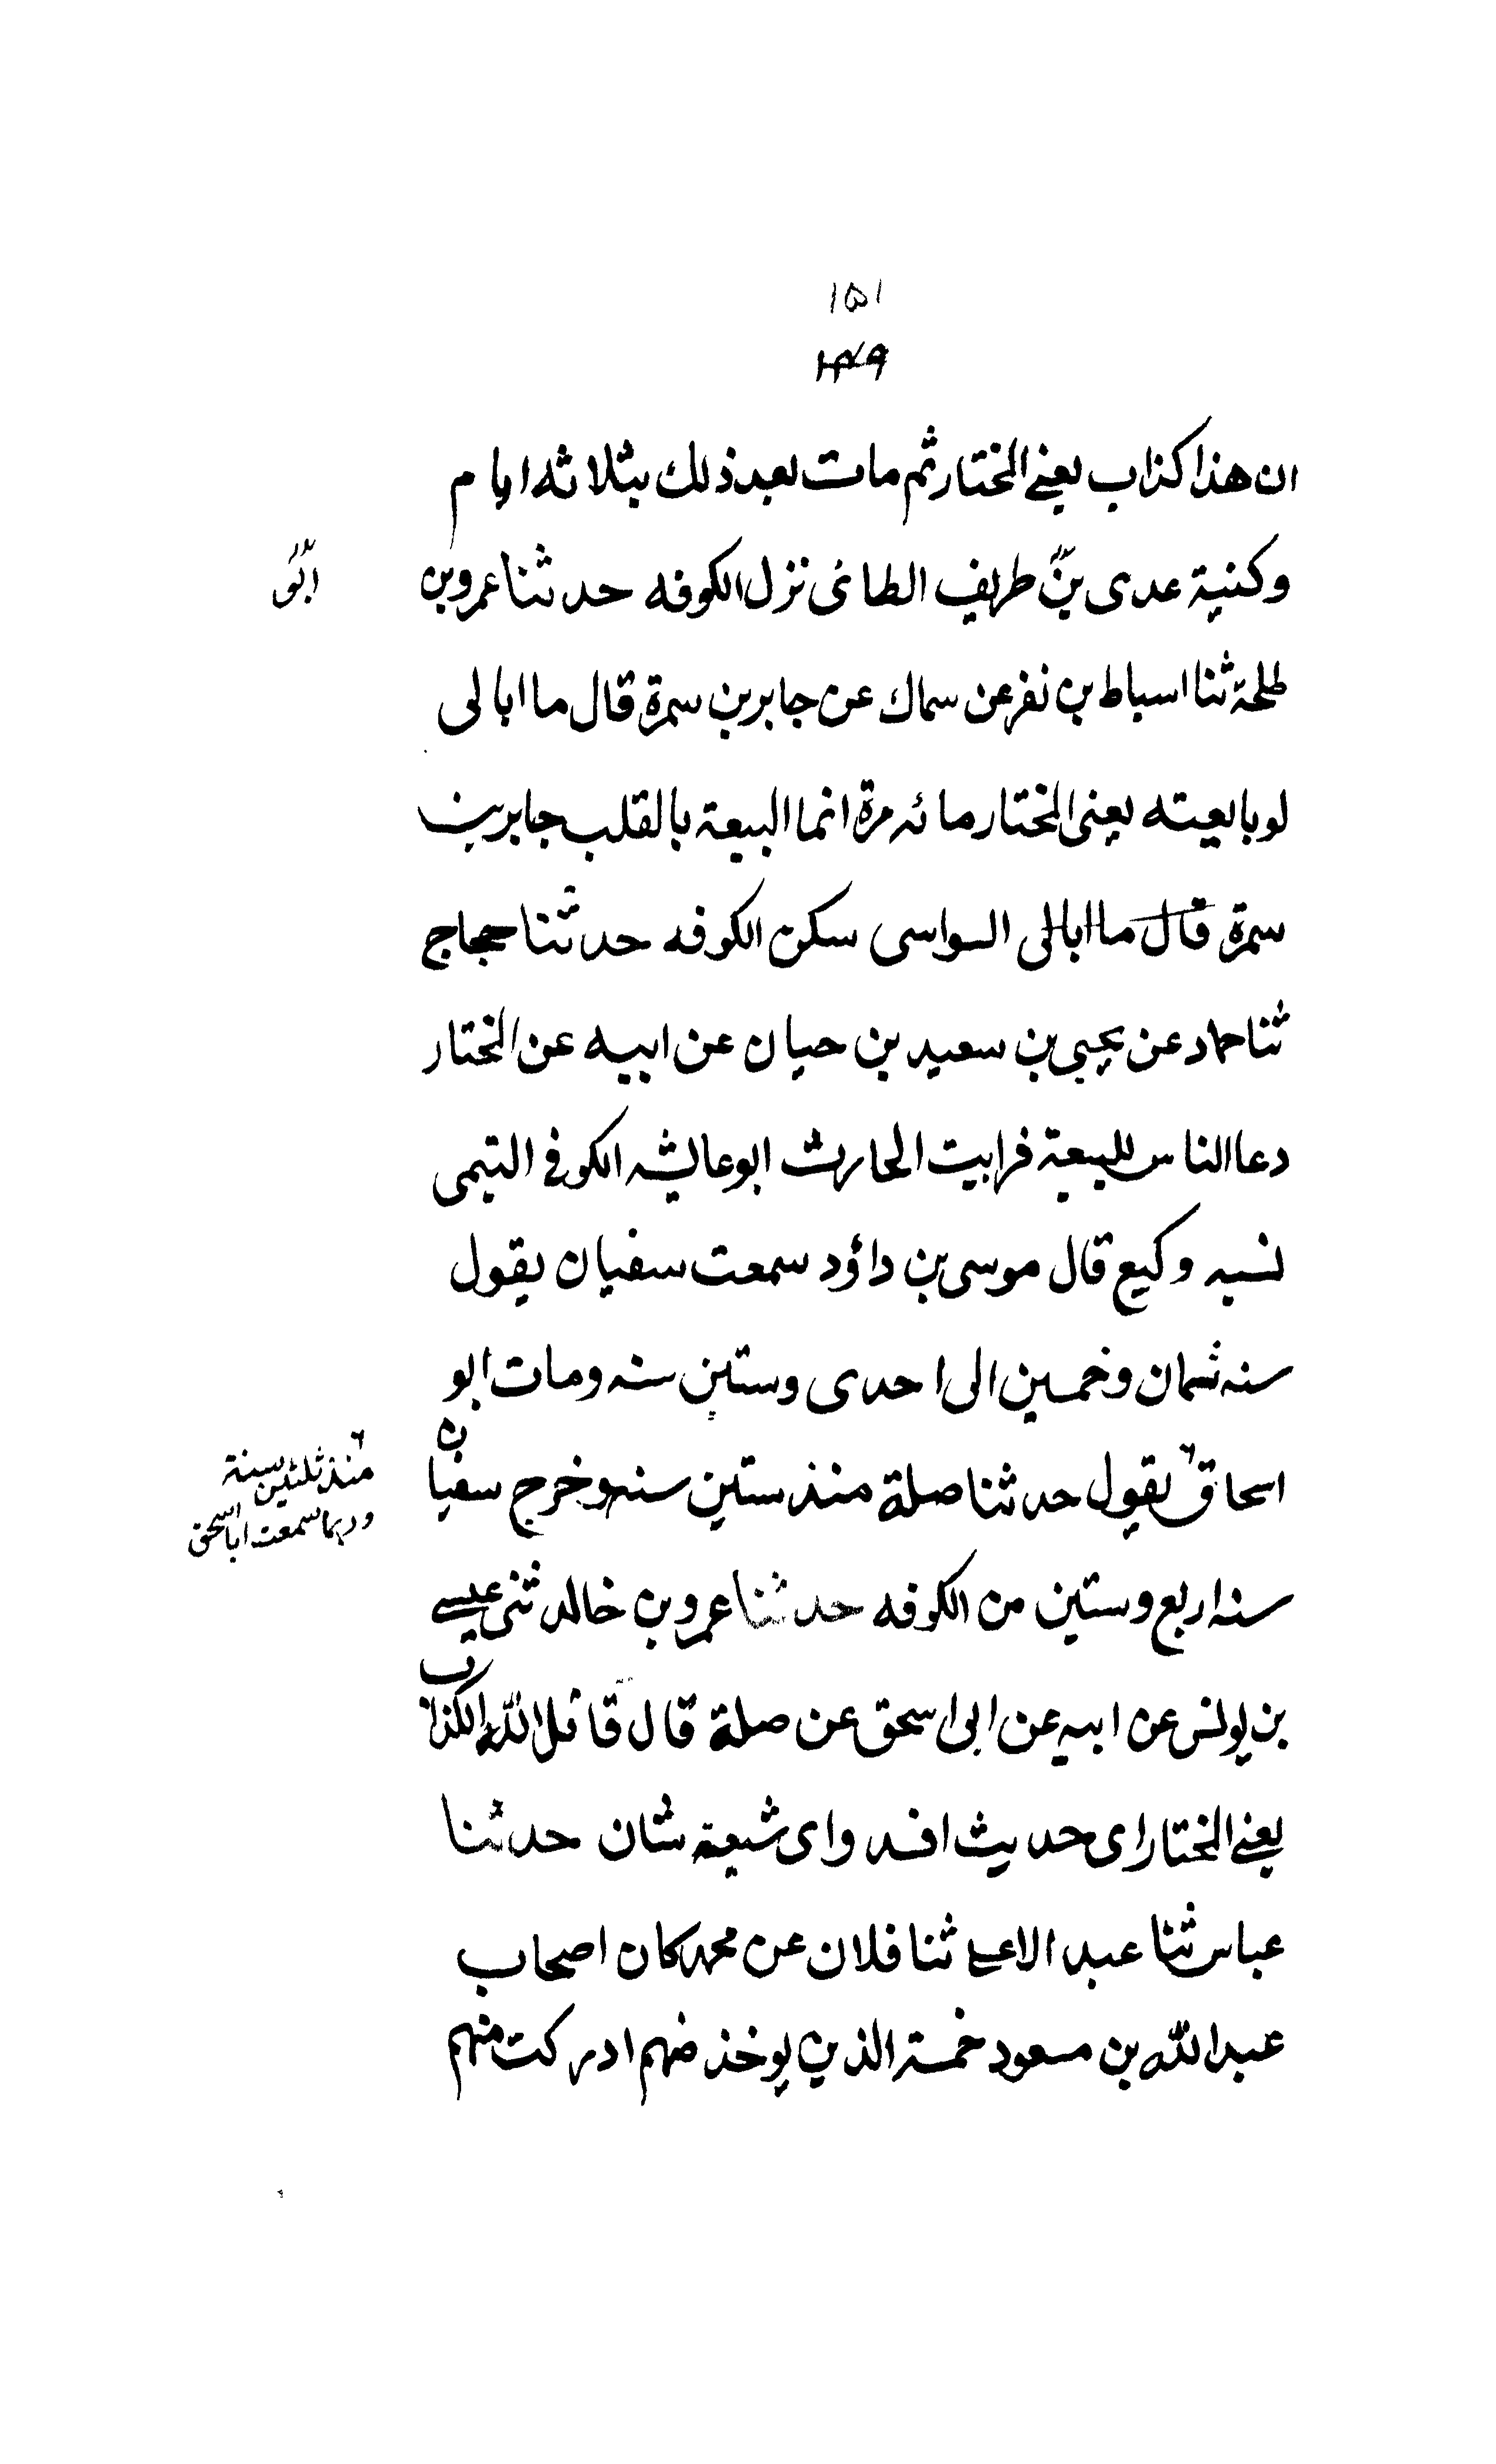 ١٥١
١٤٩
ان هذا كذاب يعني المختار ثم مات بعد ذلك بثلاثه ايام
وكنية عدى بن طريف الطائى نزل الكوفه حدثنا عمرو بن
ابو
طلحة ثنا اسباط بن نفر عن سماك عن جابر بن سمرة قال ما ابالى
لو بايعته يعنى المختار مائه مرة انما البيعة بالقلب جابر بن
سمرة قال ما ابالى السواسى سكن الكوفه حدثنا حجاج
ثنا حماد عن يحيى بن سعيد بن حيان عن ابيه عن المختار
دعا الناس للبيعة فرايت الحارث ابو عايشه الكوفى التيمى
نسبه وكيع قال موسى بن داؤد سمعت سفيان يقول
سنه ثمان وخمسين الى احدى وستين سنه ومات ابو
اسحاق يقول حدثنا صلة منذ ستين سنه وخرج سفيان
منذ ثلثين سنة
وربما سمعت ابا اسحق
سنه اربع وستين من الكوفه حدثنا عمرو بن خالد ثنى عيسے
بن يونس عن ابيه عن ابى اسحق عن صلة قال قاتل الله الكذاب
يعني المختار اى حديث افسد واى شيعة شان حدثنا
عباس ثنا عبد الاعلے ثنا فلان عن محمد كان اصحاب
عبد الله بن مسعود خمسة الذين يوخذ منهم ادركت منهم